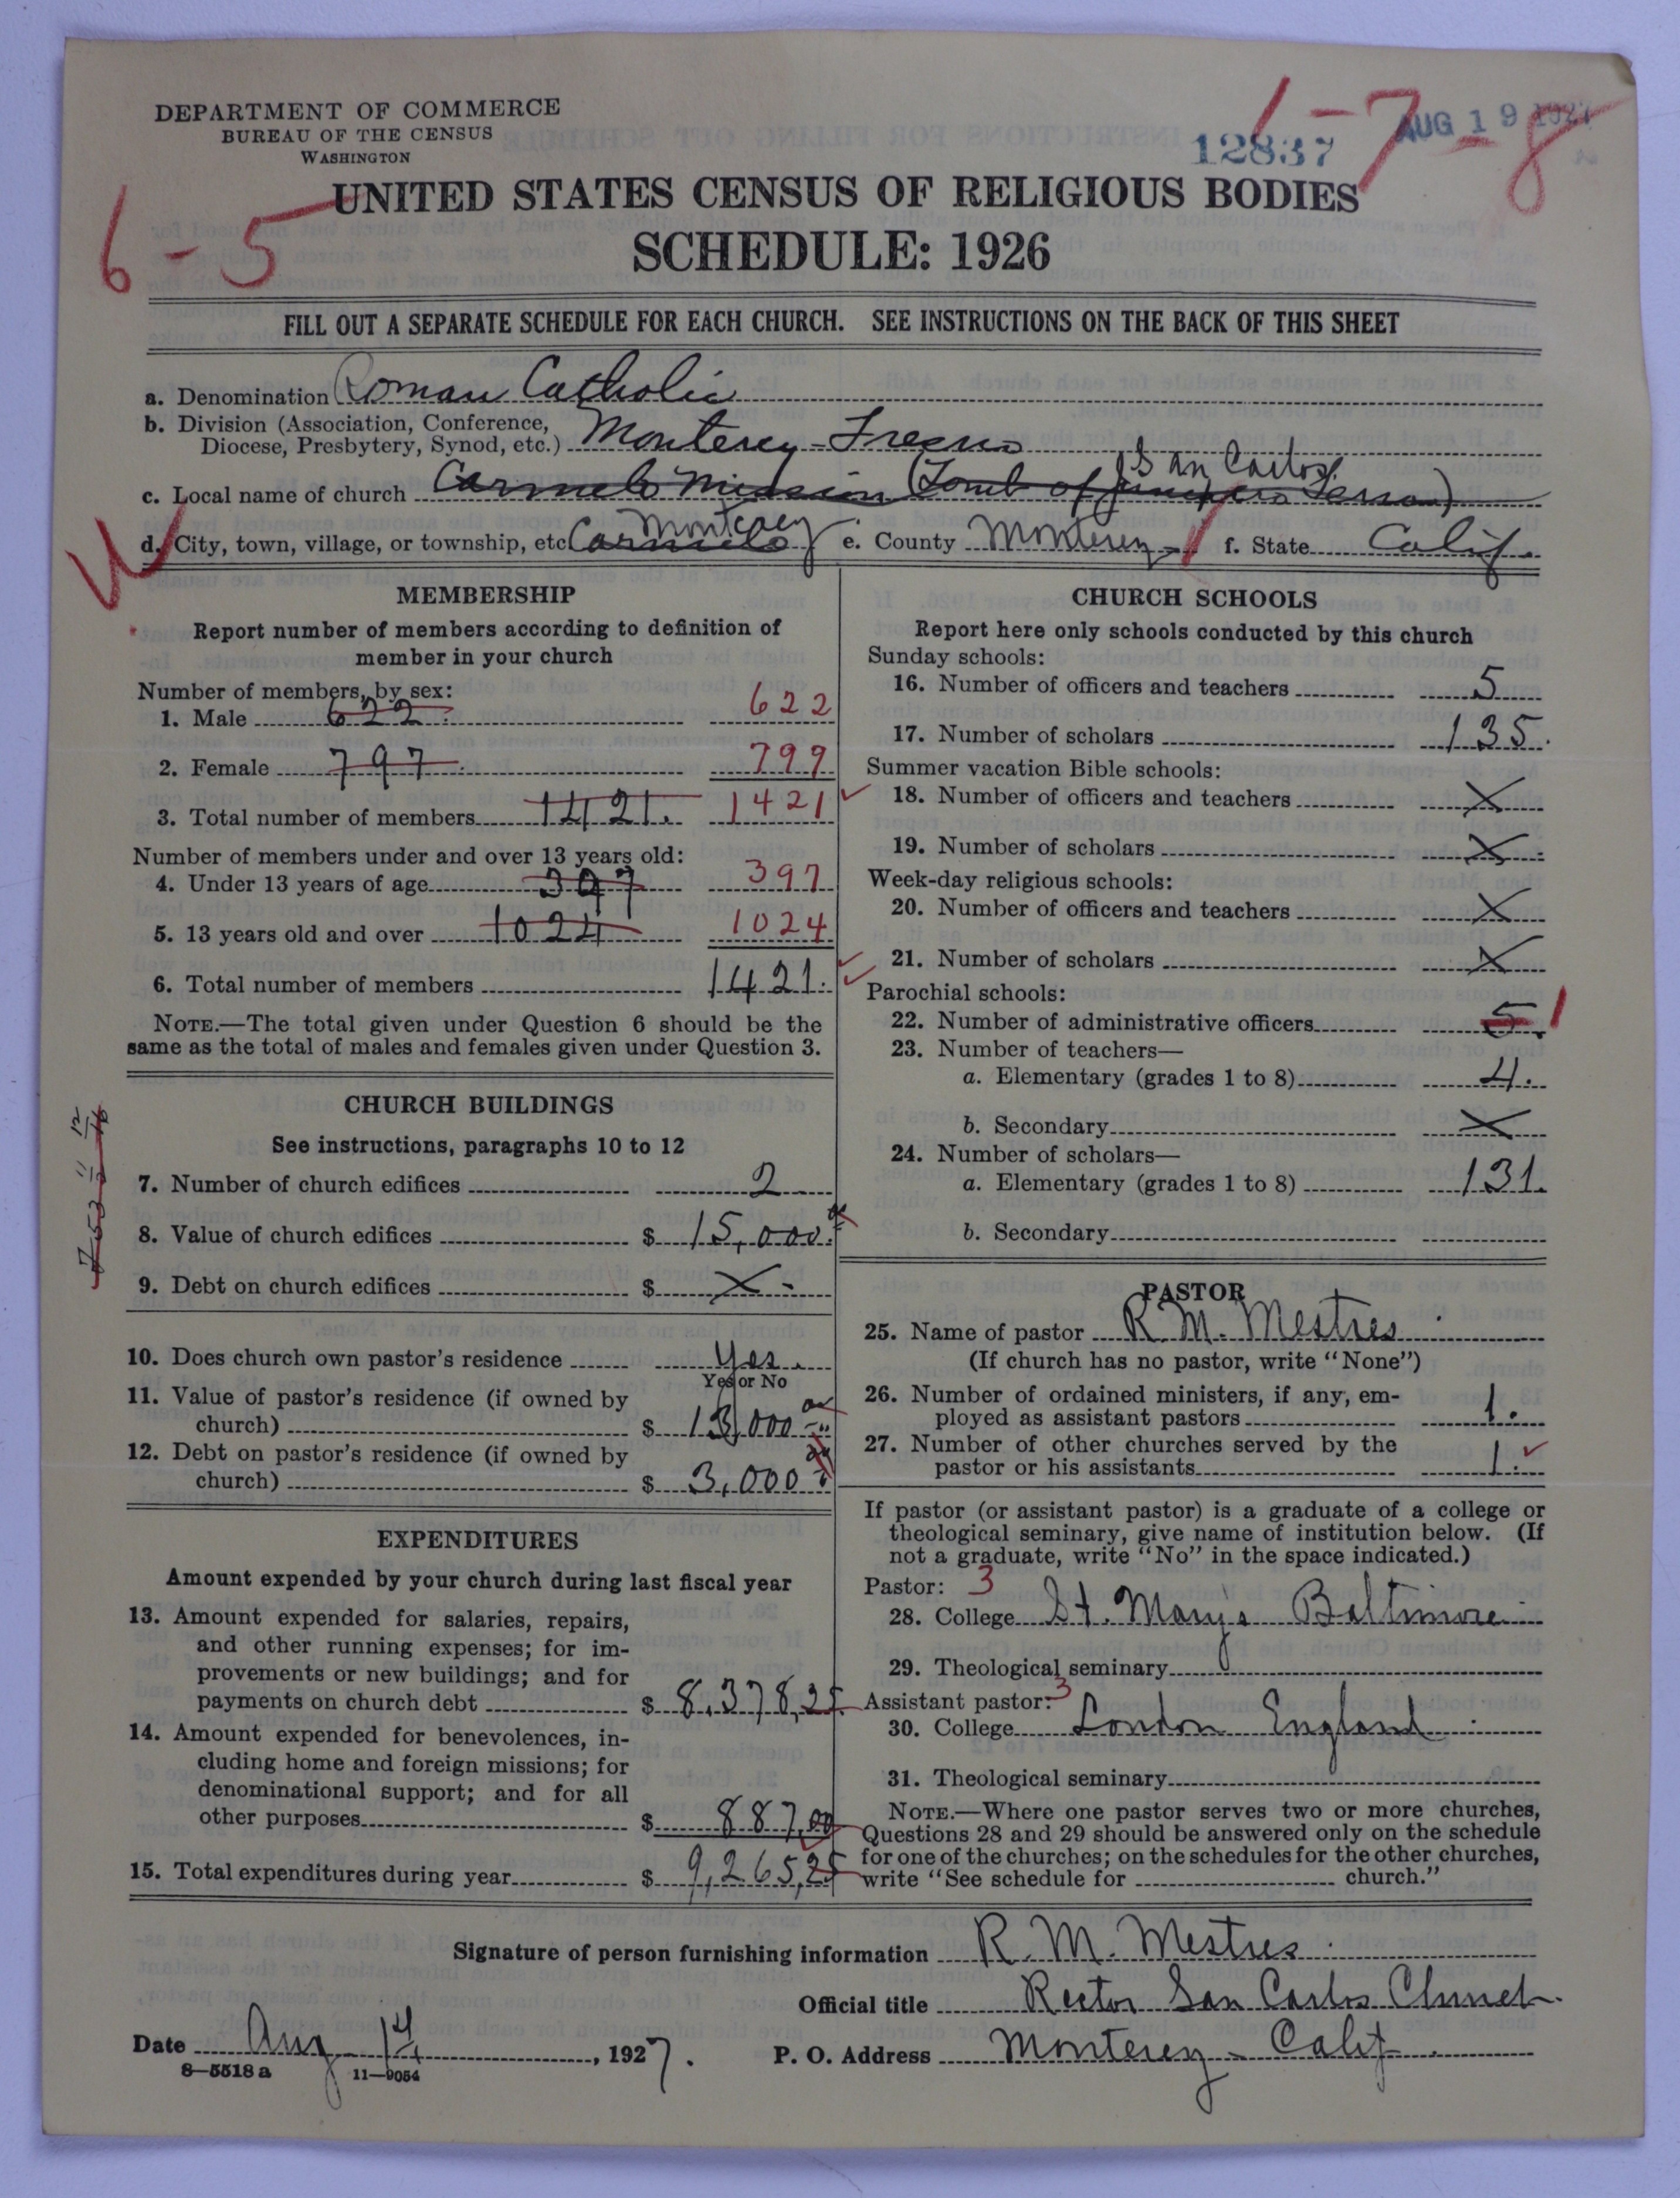 DEPARTMENT OF COMMERCE
BUREAU OF THE CENSUS
WASHINGTON
12837
AUG 19 1927
6-7-8
6-5
UNITED STATES CENSUS OF RELIGIOUS BODIES
SCHEDULE: 1926
FILL OUT A SEPARATE SCHEDULE FOR EACH CHURCH. SEE INSTRUCTIONS ON THE BACK OF THIS SHEET
a. Denomination Roman Catholic
b. Division (Association, Conference,
Diocese, Presbytery, Synod, etc.) Monterey-Fresno
San Carlos.
c. Local name of church Carmelo Mission (Tomb of Junipero Serra)
Monterey
d. City, town, village, or township, etc. Carmelo e. County Monterey f. State Calif.
MEMBERSHIP
Report number of members according to definition of
member in your church
Number of members, by sex:
1. Male 622. 622
2. Female 797. 799
3. Total number of members 1421. 1421
Number of members under and over 13 years old:
4. Under 13 years of age 397 397
5. 13 years old and over 1024 1024
6. Total number of members 1421.
NOTE.—The total given under Question 6 should be the
same as the total of males and females given under Question 3.
CHURCH BUILDINGS
See instructions, paragraphs 10 to 12
7. Number of church edifices 2
8. Value of church edifices $ 15,000.
9. Debt on church edifices $ X -
10. Does church own pastor's residence Yes.
Yes or No
11. Value of pastor's residence (if owned by
church) $ 13,000
12. Debt on pastor's residence (if owned by
church) $ 3,000
EXPENDITURES
Amount expended by your church during last fiscal year
13. Amount expended for salaries, repairs,
and other running expenses; for im-
provements or new buildings; and for
payments on church debt $ 8,378,25
14. Amount expended for benevolences, in-
cluding home and foreign missions; for
denominational support; and for all
other purposes $ 887,00
15. Total expenditures during year $ 9,265,25
CHURCH SCHOOLS
Report here only schools conducted by this church
Sunday schools:
16. Number of officers and teachers 5
17. Number of scholars 135.
Summer vacation Bible schools:
18. Number of officers and teachers X
19. Number of scholars X
Week-day religious schools:
20. Number of officers and teachers X
21. Number of scholars X
Parochial schools:
22. Number of administrative officers 5. 1
23. Number of teachers—
a. Elementary (grades 1 to 8) 4.
b. Secondary X
24. Number of scholars—
a. Elementary (grades 1 to 8) 131.
b. Secondary
PASTOR
25. Name of pastor R. M. Mestres
(If church has no pastor, write "None")
26. Number of ordained ministers, if any, em-
ployed as assistant pastors 1.
27. Number of other churches served by the
pastor or his assistants 1.
If pastor (or assistant pastor) is a graduate of a college or
theological seminary, give name of institution below. (If
not a graduate, write "No" in the space indicated.)
Pastor: 3
28. College St. Mary's Baltimore
29. Theological seminary
Assistant pastor: 3
30. College London England
31. Theological seminary
NOTE.—Where one pastor serves two or more churches,
Questions 28 and 29 should be answered only on the schedule
for one of the churches; on the schedules for the other churches,
write "See schedule for church."
Signature of person furnishing information R. M. Mestres
Official title Rector San Carlos Church.
Date Aug 14, 1927. P. O. Address Monterey - Calif.
8-5518a 11-9054